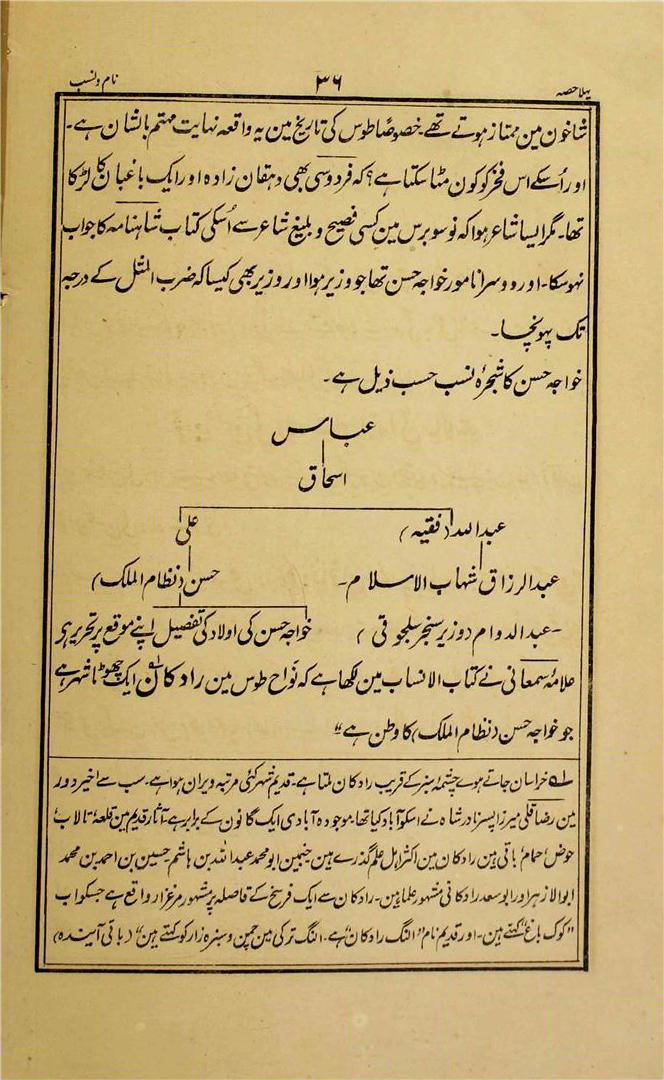 پہلا حصہ
۳۶
نام و نسب
شاخون مین ممتاز ہوتے تھے۔ خصوصًا طوس کی تاریخ مین یہ واقعہ نہایت مہتم بالشان ہے۔
اور اُسکے اس فخر کو کون مٹا سکتا ہے؟ کہ فردوسی بھی دہقان زادہ اور ایک باغبان کا لڑکا
تھا۔ مگر ایسا شاعر ہوا کہ نو سو برس مین کسی فصیح و بلیغ شاعر سے اُسکی کتاب شاہنامہ کا جواب
نہو سکا۔ اور دوسرا نامور خواجہ حسن تھا جو وزیر ہوا اور وزیر بھی کیسا کہ ضرب المثل کے درجہ
تک پہونچا۔
خواجہ حسن کا شجرۂ نسب حسب ذیل ہے۔
عباس
اسحاق
عبداللہ (فقیہ)
علی
عبدالرزاق شہاب الاسلام۔
حسن (نظام الملک)
۔عبدالدوام (وزیر سنجر سلجوقی)
خواجہ حسن کی اولاد کی تفصیل اپنے موقع پر تحریر ہی
علامۂ سمعانی نے کتاب الانساب مین لکھا ہے کہ نواح طوس مین رادکان۱؎ ایک چھوٹا شہر ہے
جو خواجہ حسن (نظام الملک) کا وطن ہے"
۱؎ خراسان جاتے ہوے چشمۂ سبز کے قریب رادکان ملتا ہے۔ قدیم شہر کئی مرتبہ ویران ہوا ہے۔ سب سے اخیر دور
مین رضا قلی میرزا پسر نادر شاہ نے اسکو آباد کیا تھا۔ موجودہ آبادی ایک گانون کے برابر ہے۔ آثار قدیم مین قلعہ تالاب
حوض حمام باقی ہین رادکان مین اکثر اہل علم گذرے ہین جنمین ابو محمد عبداللہ بن ہاشم حسین بن احمد بن محمد
ابوالازہر اور ابوسعد رادکانی مشہور علما ہین۔ رادکان سے ایک فرسخ کے فاصلہ پر مشہور مرغزار واقع ہے جسکو اب
"کوک باغ" کہتے ہین۔ اور قدیم نام "النگ رادکان" ہے۔ النگ ترکی مین چمن و سبزہ زار کو کہتے ہین" (باقی آیندہ)